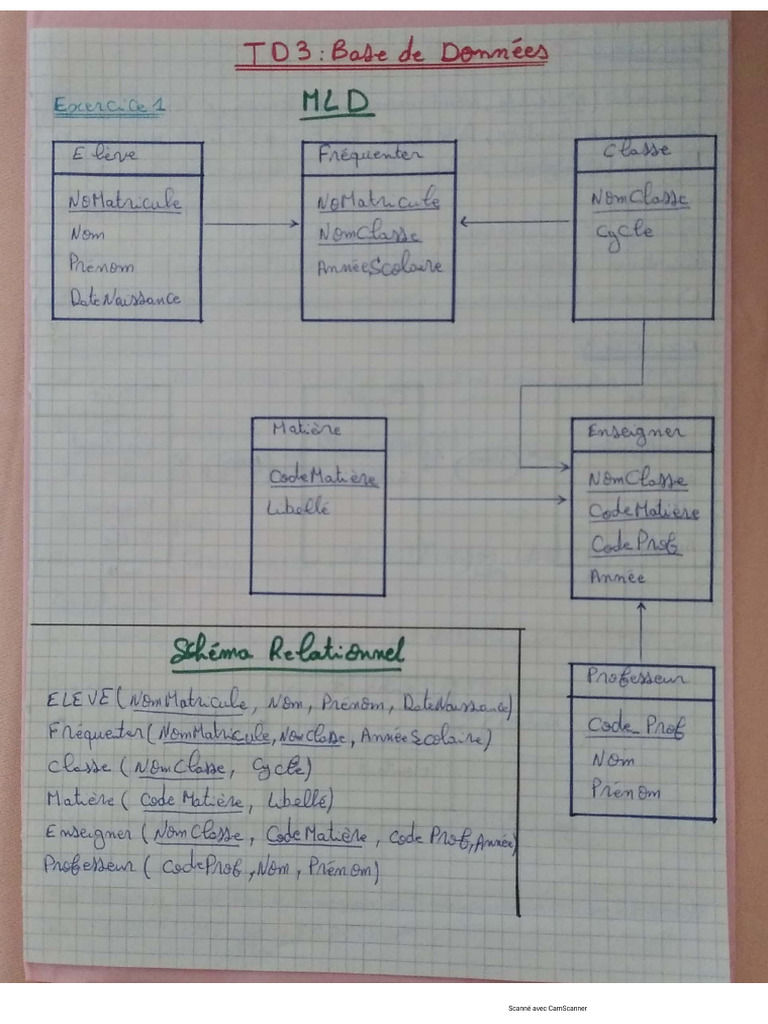 TD3 : Base de Données
Exercice 1
MLD
Elève
NoMatricule
Nom
Prénom
DateNaissance
Fréquenter
NoMatricule
NomClasse
AnnéeScolaire
Classe
NomClasse
Cycle
Matière
CodeMatière
Libellé
Enseigner
NomClasse
CodeMatière
CodeProf
Année
Professeur
Code_Prof
Nom
Prénom
Schéma Relationnel
ELEVE (NomMatricule, Nom, Prénom, DateNaissance)
Fréquenter (NomMatricule, NomClasse, AnnéeScolaire)
Classe (NomClasse, Cycle)
Matière (Code Matière, Libellé)
Enseigner (NomClasse, CodeMatière, Code Prof, Année)
Professeur (CodeProf, Nom, Prénom)
Scanné avec CamScanner